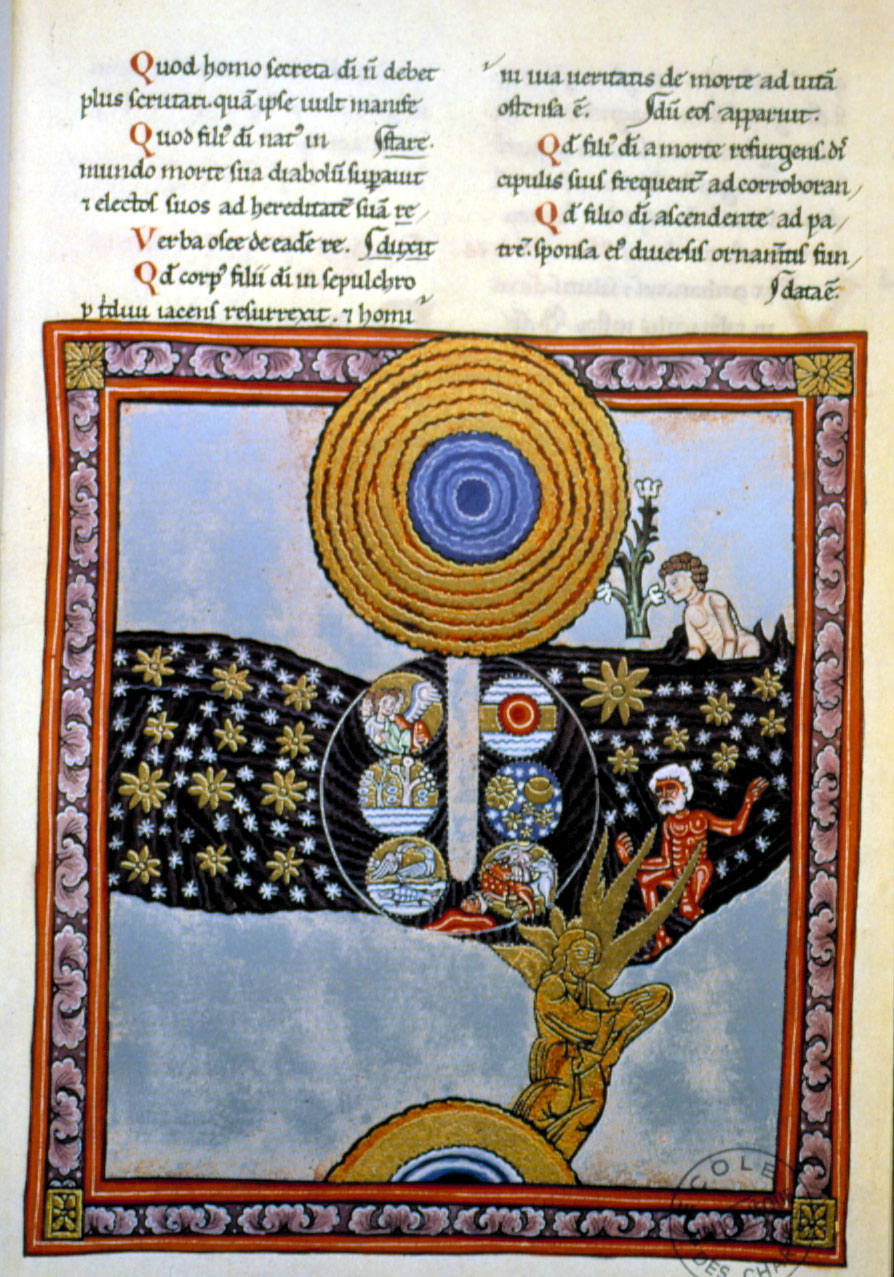 Quod homo secreta dī n̄ debet
plus scrutari. quā ipse uult manife
Quod filiꝰ dī natꝰ in stare.
mundo morte sua diabolū suꝑauit
⁊ electos suos ad hereditatē suā re
Verba osee de eadē re. duxit
Qd̄ corpꝰ filii dī in sepulchro
p iacens resurrexit. ⁊ homi
ni uia ueritatis de morte ad uitā
ostensa ē. dū eos apparuit.
Qd̄ filiꝰ dī a morte resurgens. di
cipulis suis frequent' ad corroboran
Qd̄ filio dī ascendente ad pa
trē. sponsa eiꝰ diuersis ornam̄tis fun
data ē.
COLE
DES CHAR